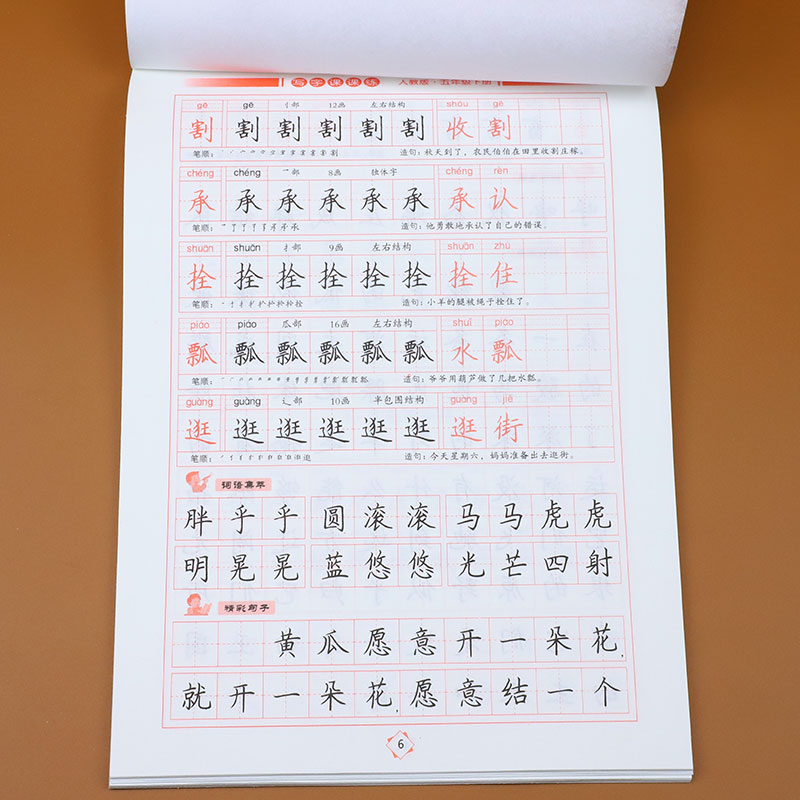 写字课课练 人教版·五年级下册
gē gē 刂部 12画 左右结构 shōu gē
割 割 割 割 割 割 收 割
笔顺： 造句：秋天到了，农民伯伯在田里收割庄稼。
chéng chéng 乛部 8画 独体字 chéng rèn
承 承 承 承 承 承 承 认
笔顺： 造句：他勇敢地承认了自己的错误。
shuān shuān 扌部 9画 左右结构 shuān zhù
拴 拴 拴 拴 拴 拴 拴 住
笔顺： 造句：小羊的腿被绳子拴住了。
piáo piáo 瓜部 16画 左右结构 shuǐ piáo
瓢 瓢 瓢 瓢 瓢 瓢 水 瓢
笔顺： 造句：爷爷用葫芦做了几把水瓢。
guàng guàng 辶部 10画 半包围结构 guàng jiē
逛 逛 逛 逛 逛 逛 逛 街
笔顺： 造句：今天星期六，妈妈准备出去逛街。
词语集萃
胖乎乎 圆滚滚 马马虎虎
明晃晃 蓝悠悠 光芒四射
精彩句子
黄瓜愿意开一朵花，
就开一朵花，愿意结一个
6